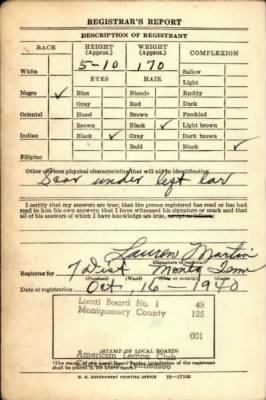 REGISTRAR'S REPORT
DESCRIPTION OF REGISTRANT
RACE HEIGHT (Approx.) WEIGHT (Approx.) COMPLEXION
5-10 170
White Sallow
EYES HAIR Light
Negro ✓ Blue Blonde Ruddy
Gray Red Dark
Oriental Hazel Brown Freckled
Brown Black ✓ Light brown
Indian Black ✓ Gray Dark brown
Bald Black ✓
Filipino
Other obvious physical characteristics that will aid in identification
Scar under left ear
I certify that my answers are true; that the person registered has read or has had
read to him his own answers; that I have witnessed his signature or mark and that
all of his answers of which I have knowledge are true, except as follows:
Lauren Martin
(Signature of registrar)
Registrar for 7 Dist Montg Tenn
(Precinct) (Ward)
Date of registration Oct 16 - 1940
Local Board No. 1 48
Montgomery County 125
001
(STAMP OF LOCAL BOARD)
American Legion Club
Tennessee
(The stamp of the Local Board having jurisdiction of the registrant
shall be placed in the above space.)
U. S. GOVERNMENT PRINTING OFFICE 16-17105